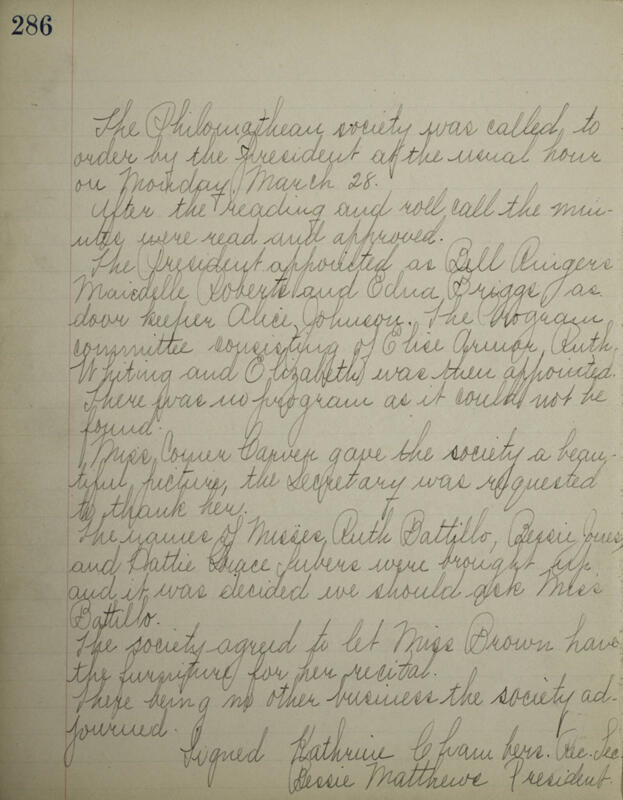 286
The Philomathean society was called to
order by the President at the usual hour
on Monday, March 28.
After the reading and roll call the min-
utes were read and approved.
The President appointed as Bell Ringers
Maidelle Roberts and Edna Briggs, as
door keeper Alice Johnson. The Program
committee consisting of Elise Armor, Ruth
Whiting and Elizabeth was then appointed.
There was no program as it could not be
found.
Miss Comer Carver gave the society a beau-
tiful picture, the Secretary was requested
to thank her.
The names of Misses Ruth Battillo, Bessie Jones,
and Hattie Grace were brought up
and it was decided we should ask Miss
Battillo.
The society agreed to let Miss Brown have
the furniture for her recital.
There being no other business the society ad-
journed.
Signed Kathrine Chambers. Rec. Sec.
Bessie Matthews President.